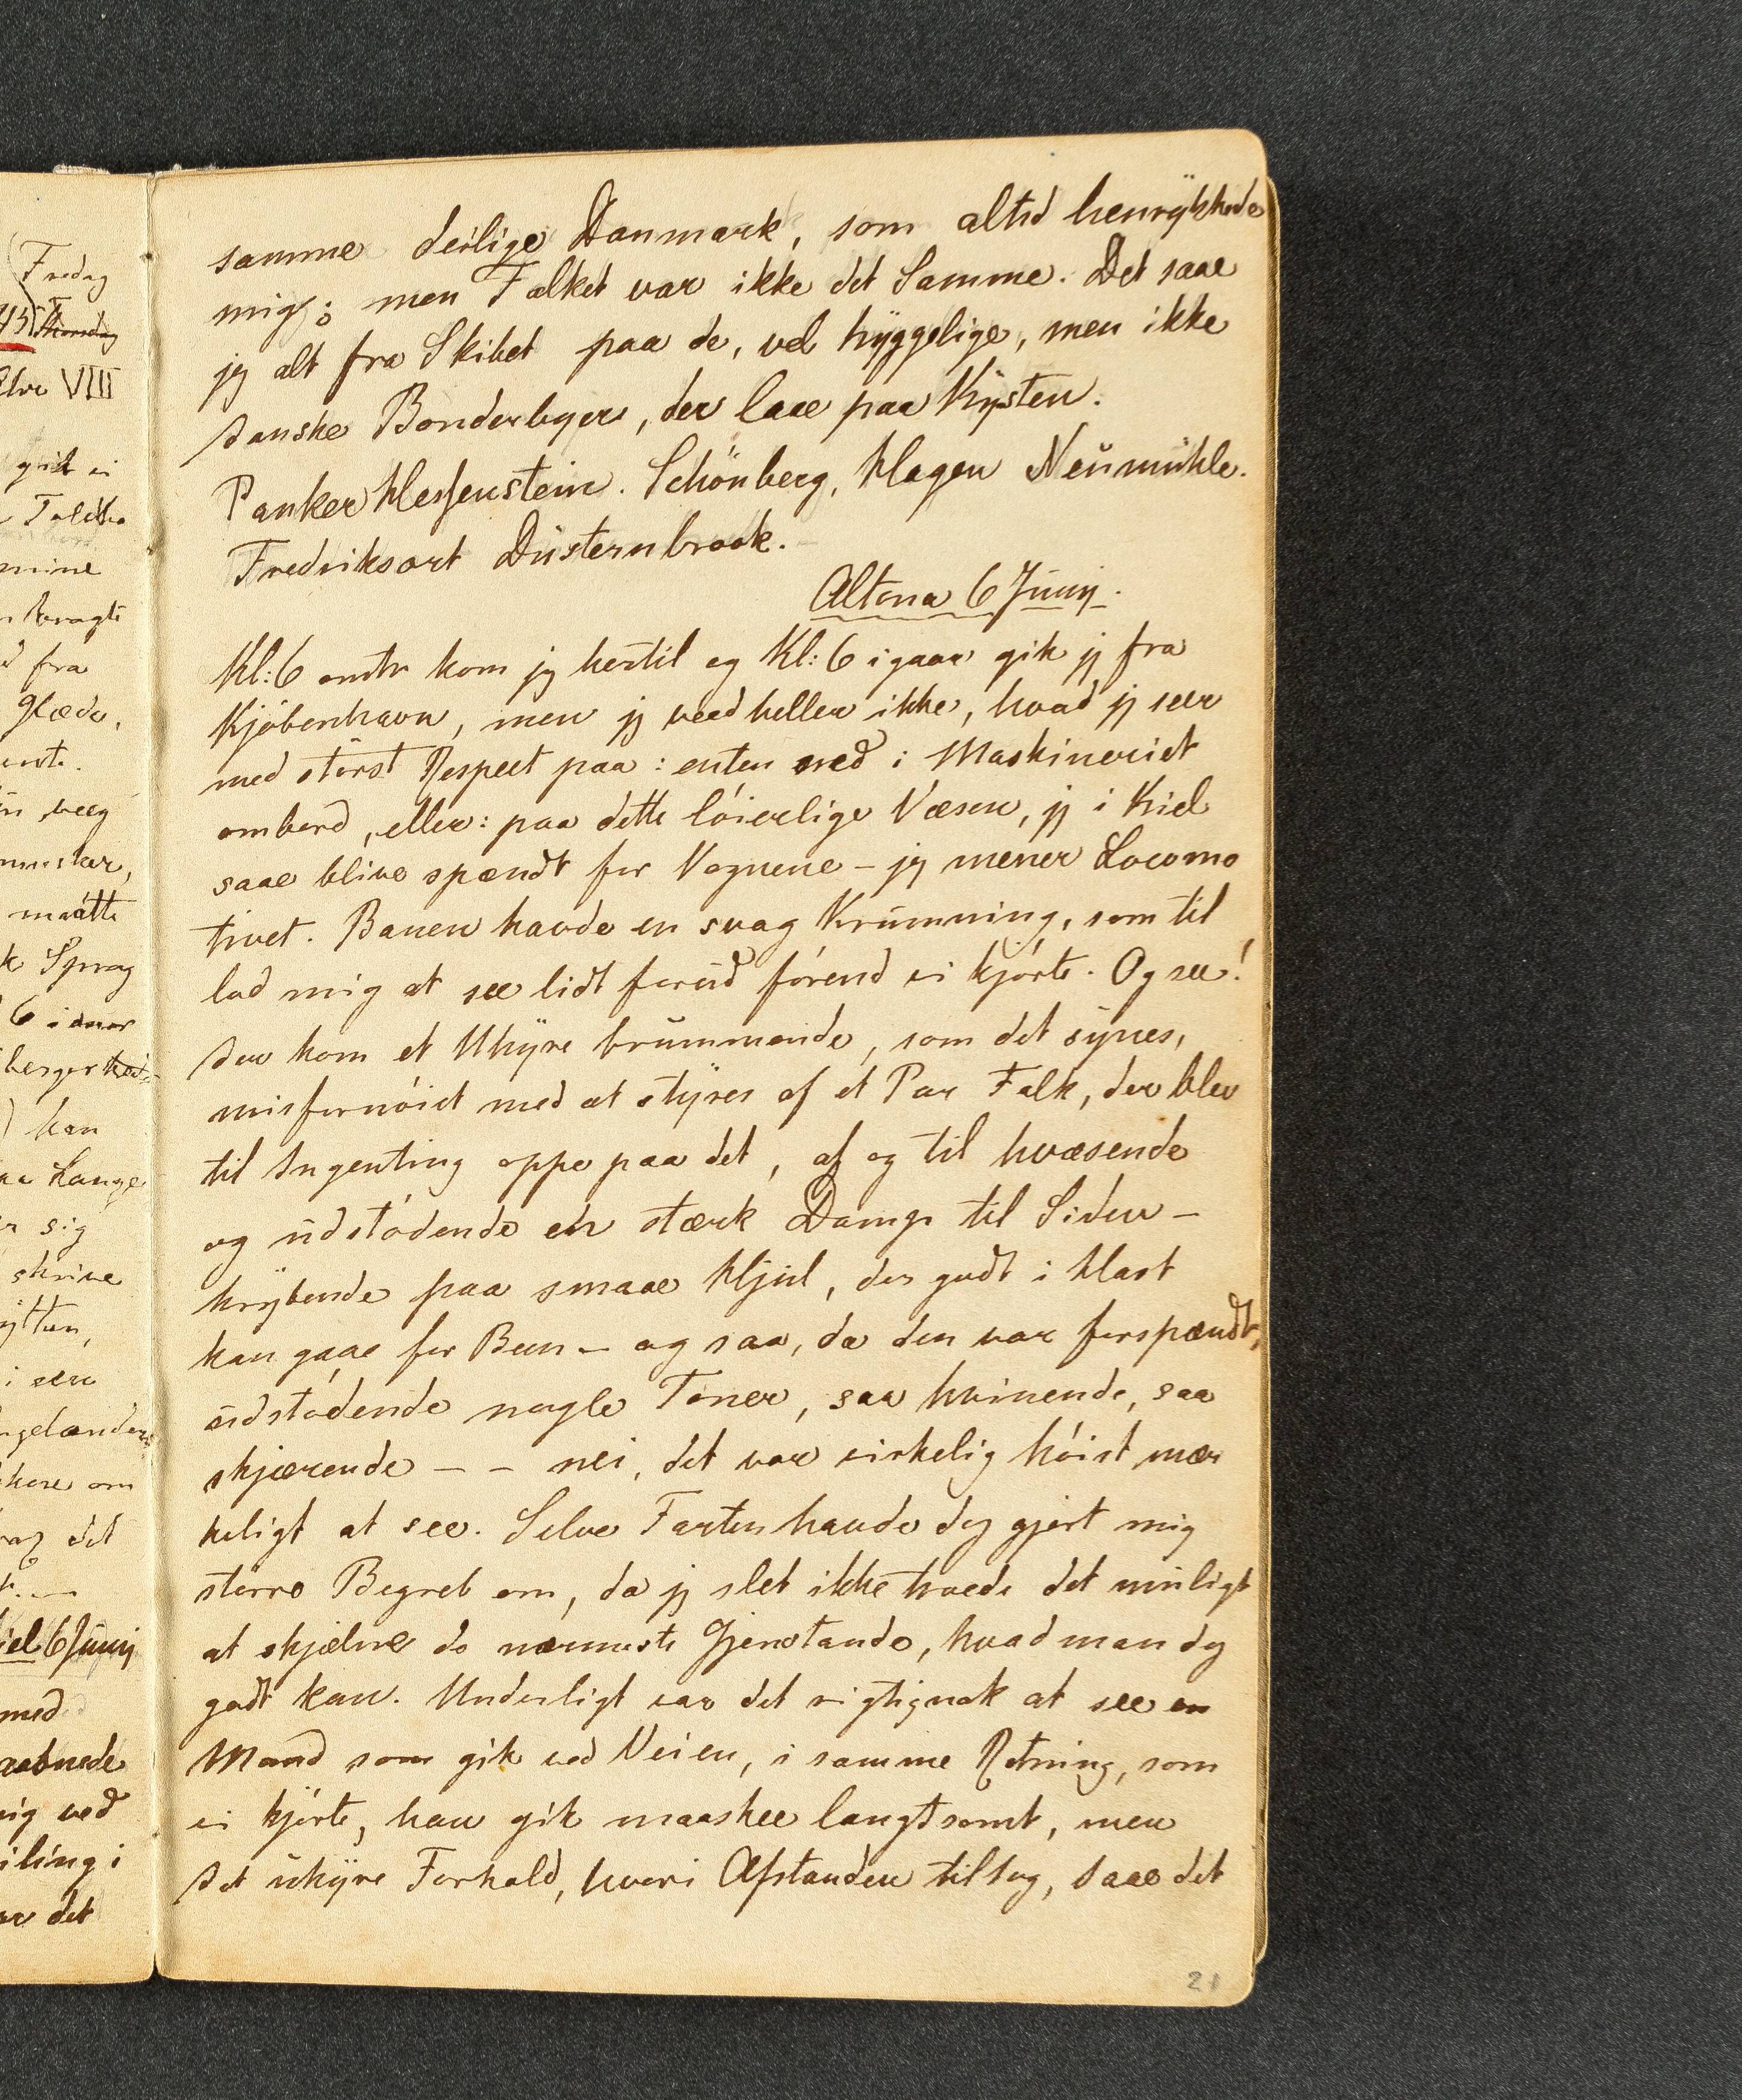 Fredag
45 Mandag
VIII
gik vi
mine
bragte
fra
Glæde,
væg
maatte
k Sprog
6 i
kan
paa Lange
sig
skrive
i see
om
det
iel 6 Junij
med
aabnede
mig ved
iling i
det
samme deilige Danmark, som altid henrykkede
mig; men Folket var ikke det Samme. Det saae
jeg alt fra Skibet paa de, vel hyggelige, men ikke
danske Bønderbyer, der laae paa Kysten.
Panker Hessenstein. Schönberg, Hagen Neumühle.
Fredriksort Düsternbrook.
Altona 6 Junij.
Kl: 6 omtr kom jeg hertil og Kl: 6 igaar gik jeg fra
Kjöbenhavn, men jeg veed heller ikke, hvad jeg seer
med störst Respect paa: enten ned i Maskineriet
ombord, eller: paa dette löierlige Væsen, jeg i Kiel
saae blive spændt for Vognene – jeg mener Locomo
tivet. Banen havde en svag Krumning, som til
lod mig at see lidt forud förend vi kjörte. Og see!
der kom et Uhyre brummende, som det synes,
misfornöiet med at styres af et Par Folk, der blev
til Ingenting oppe paa det, af og til hvæsende
og udstödende en stærk Damp til Siden –
krybende paa smaae Hjul, der godt i Hast
kan gaae for Been – og saa, da den var forspændt,
udstödende nogle Toner, saa hvinende, saa
skjærende – – nei, det var virkelig höist mær
keligt at see. Selve Farten havde dog gjort mig
större Begreb om, da jeg slet ikke troede det muligt
at skjælne de nærmeste Gjenstande, hvad man dog
godt kan. Underligt var det rigtignok at see en
Mand som gik ved Veien, i samme Retning, som
vi kjörte, han gik maaskee langtsomt, men
det uhyre Forhold, hvori Afstanden tiltog, saae det
21